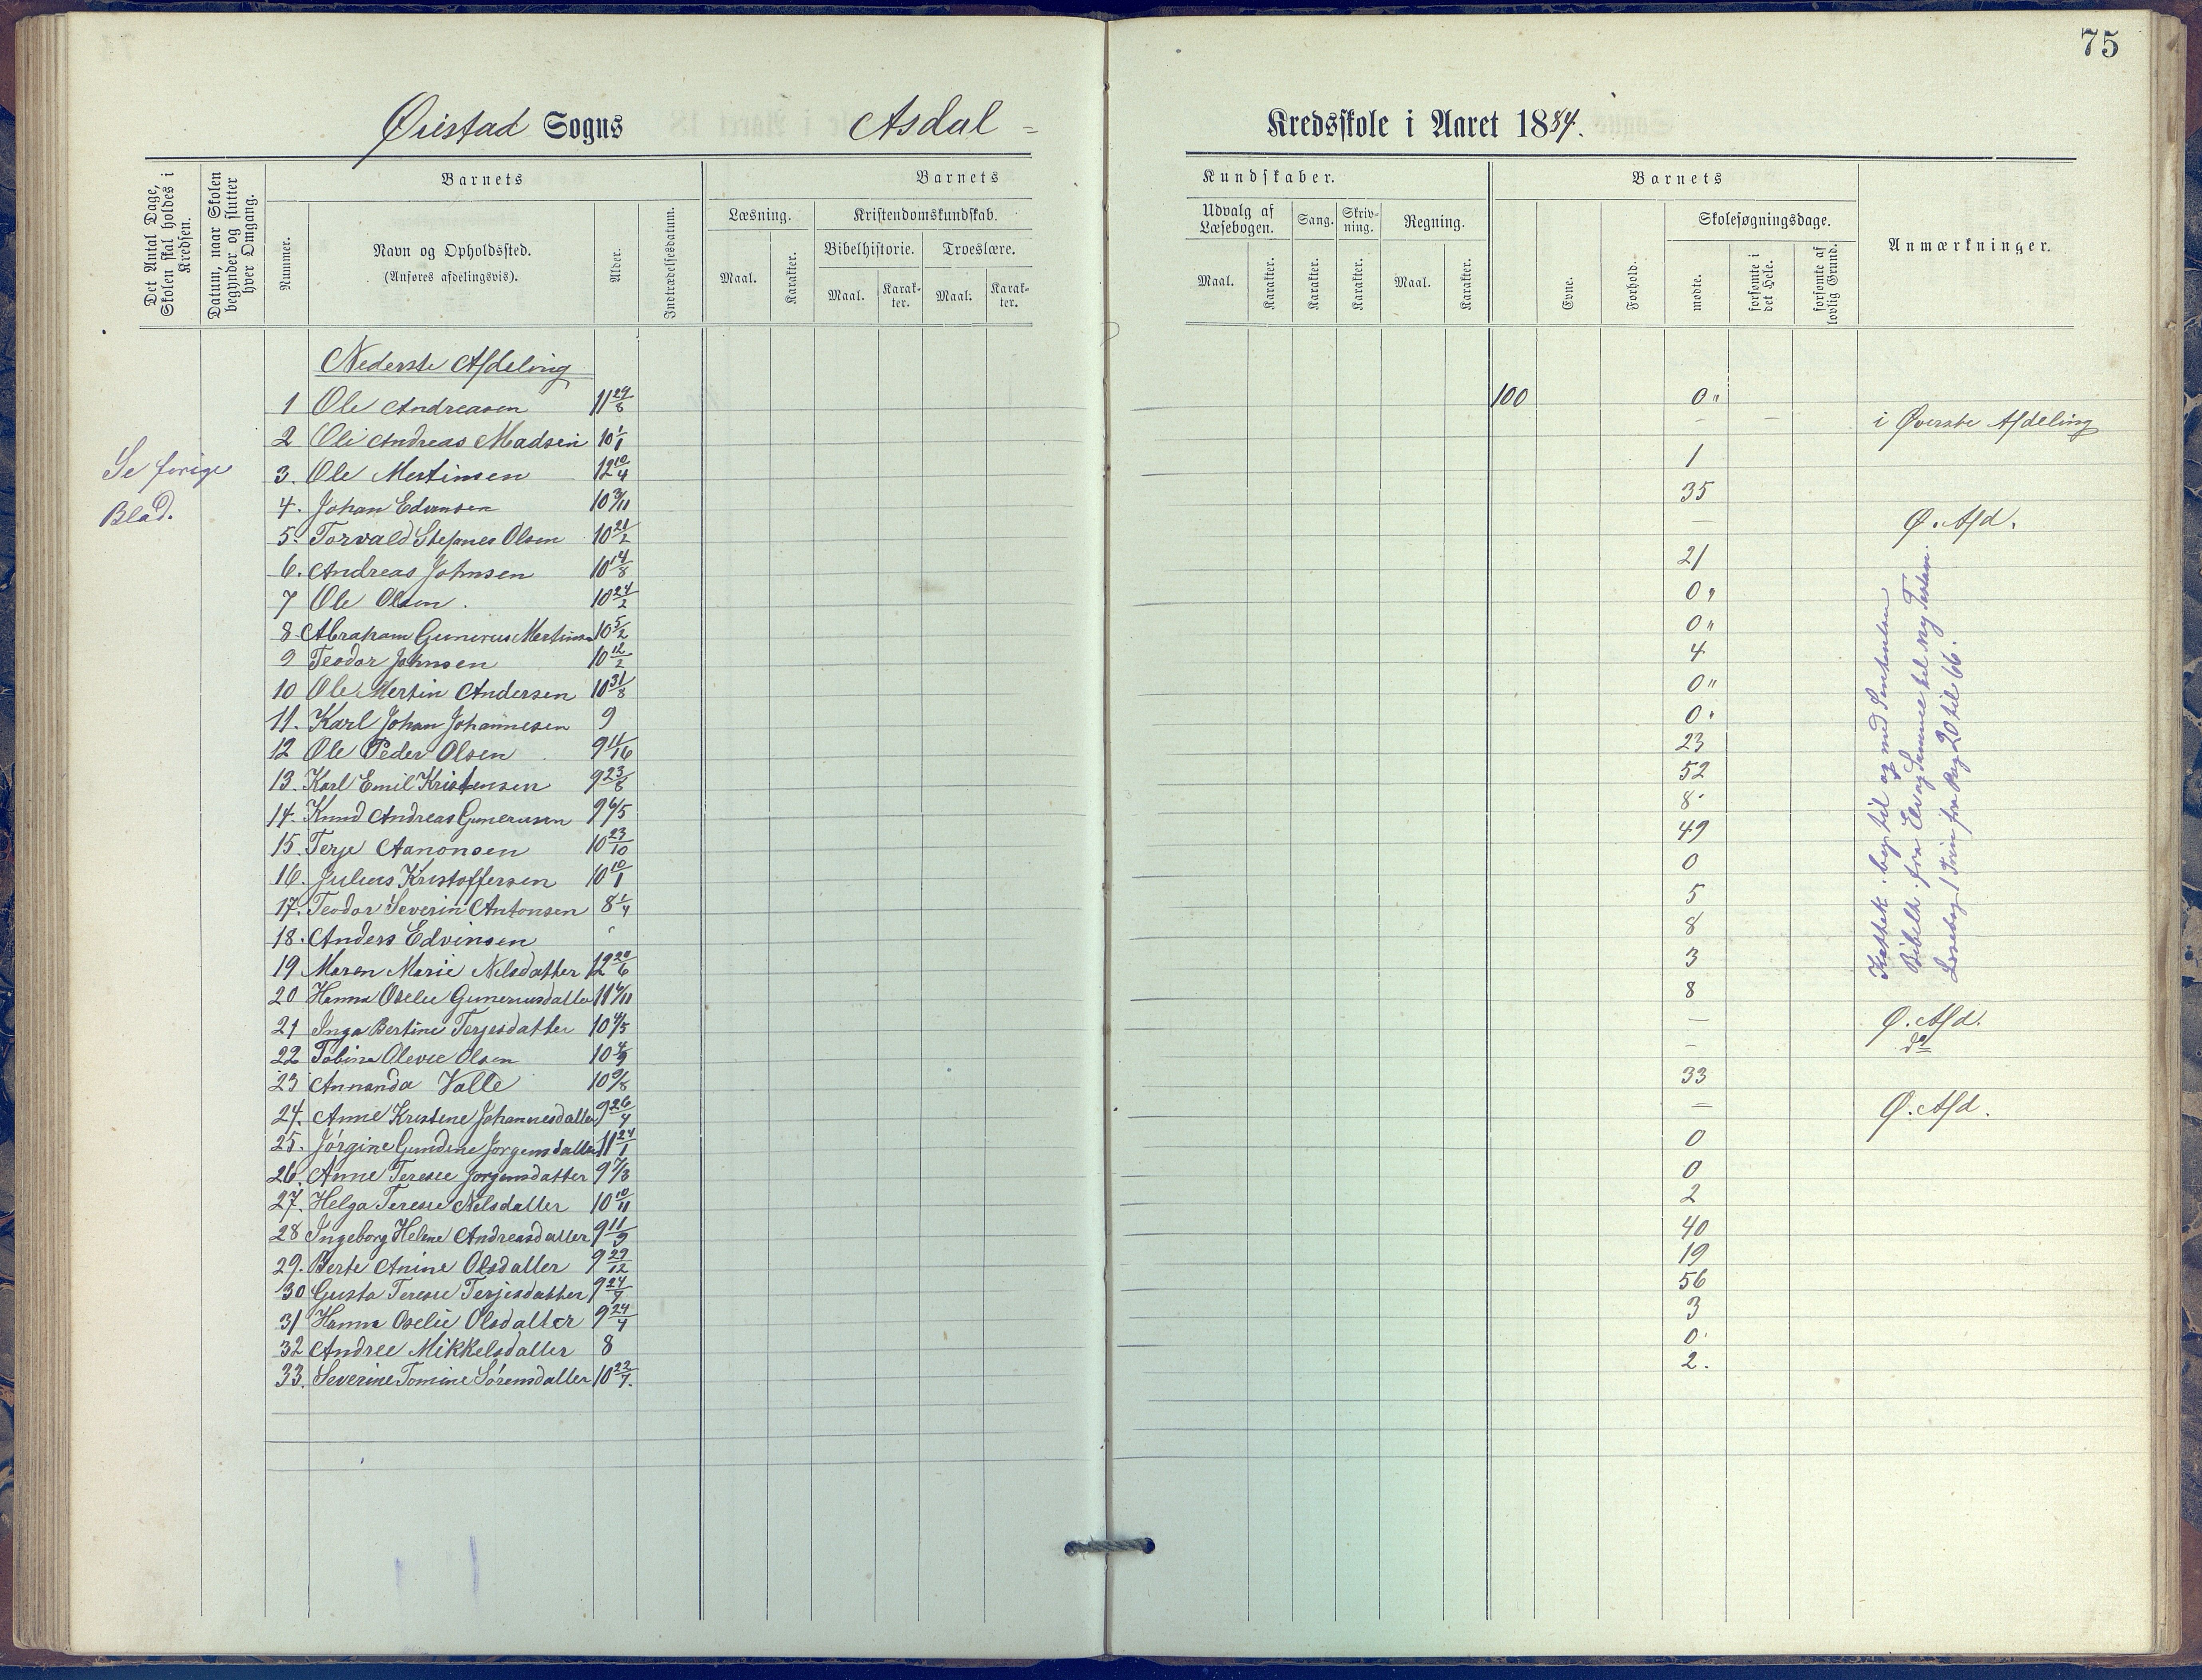 75
Øiestad Sogns Asdal = Kredsskole i Aaret 1884.
Det Antal Dage, Skolen skal holdes i Kredsen.
Datum, naar Skolen begynder og slutter hver Omgang.
Barnets
Nummer.
Navn og Opholdssted.
(Anføres afdelingsvis).
Alder.
Indtrædelsesdatum.
Barnets Kundskaber.
Læsning.
Maal.
Karakter.
Kristendomskundskab.
Bibelhistorie.
Maal.
Karakter.
Troeslære.
Maal.
Karakter.
Udvalg af Læsebogen.
Maal.
Karakter.
Sang.
Karakter.
Skrivning.
Karakter.
Regning.
Maal.
Karakter.
Barnets
Evne.
Forhold.
Skolesøgningsdage.
mødte.
forsømte i det Hele.
forsømte af lovlig Grund.
Anmærkninger.
Se forige
Blad.
Nederste Afdeling
1 Ole Andreasen 11 29/8 100 0 "
2 Ole Andreas Madsen 10 1/1 - i Øverste Afdeling
3. Ole Mertinsen 12 10/4 1
4. Johan Edvinsen 10 3/11 35
5. Torvald Stefanes Olsen 10 21/2 — Ø. Afd.
6. Andreas Johnsen 10 14/8 21
7 Ole Olsen. 10 24/2 0 "
8 Abraham Gunerus Mertinsen 10 5/2 0 "
9 Teodor Johnsen 10 12/2 4
10 Ole Mertin Andersen 10 31/8 0 "
11. Karl Johan Johannesen 9 0 "
12 Ole Peder Olsen 9 11/16 23
13. Karl Emil Kristensen 9 23/8 52
14. Knud Andreas Gunerusen 9 6/5 8
15. Terje Aanonsen 10 23/10 49
16. Julius Kristoffersen 10 10/1 0
17. Teodor Severin Antonsen 8 1/4 5
18. Anders Edvinsen " 8
19 Maren Marie Nilsdatter 12 20/6 3
20 Hanna Oselie Guneriusdatter 11 6/11 8
21 Inga Bertine Terjesdatter 10 4/5 — Ø. Afd.
22 Tobine Olevie Olsen 10 4/9 - do
23 Annanda Valle 10 9/8 33
24. Anne Kristene Johannesdatter 9 26/4 — Ø. Afd.
25. Jørgine Gundine Jørgensdatter 11 24/1 0
26. Anne Teresie Jørgensdatter 9 7/3 0
27. Helga Teresie Nilsdatter 10 10/11 2
28 Ingeborg Helene Andreasdatter 9 11/9 40
29. Berte Anine Olsdatter 9 29/12 19
30 Gusta Teresie Terjesdatter 9 24/7 56
31 Hanna Oselie Olsdatter 9 24/4 3
32 Andree Mikkelsdatter 8 0
33. Severine Tomine Sørensdatter 10 22/7. 2.
Katek. beg. til og med
Bibelh. fra Eli og Samuel til ny Testam.
Læsebog 1 Trin fra Pag 20 til 66.